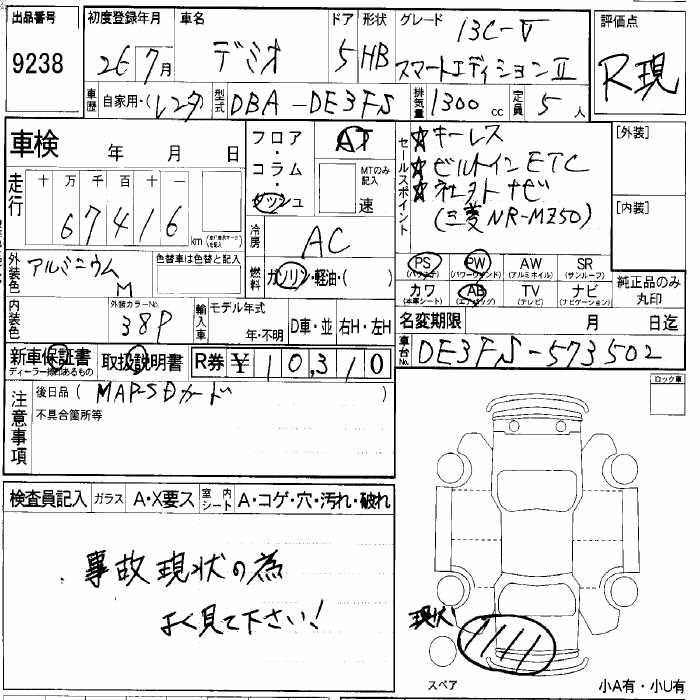 出品番号 初度登録年月 車名 ドア 形状 グレード 評価点
9238 26 7月 デミオ 5 HB 13C-V
スマートエディションⅡ R現
車歴 自家用・(レンタ) 型式 DBA-DE3FS 排気量 1300 cc 定員 5 人
車検 年 月 日 フロア・コラム・ダッシュ AT MTのみ記入 速
セールスポイント ☆キーレス
☆ビルトインETC
☆社外ナビ
(三菱NR-MZ50)
[外装]
[内装]
走行 十 万 千 百 十 一
67416 km
冷房 AC
燃料 ガソリン・軽油・( )
外装色 アルミニウムM 色替車は色替と記入
内装色 外装カラーNo. 38P 輸入車 モデル年式
年・不明 D車・並 右H・左H
PS (パワステ) PW (パワーウインド) AW (アルミホイル) SR (サンルーフ)
カワ (本革シート) AB (エアバッグ) TV (テレビ) ナビ (ナビゲーション)
純正品のみ丸印
名変期限 月 日迄
新車保証書 ディーラー捺印あるもの 取扱説明書 R券 ¥10,310
車台No. DE3FS-573502
注意事項 後日品( MAP-SDカード )
不具合箇所等
ロック車
検査員記入 ガラス A・X要ス 室内シート A・コゲ・穴・汚れ・破れ
事故現状の為
よく見て下さい!
現状
スペア 小A有・小U有